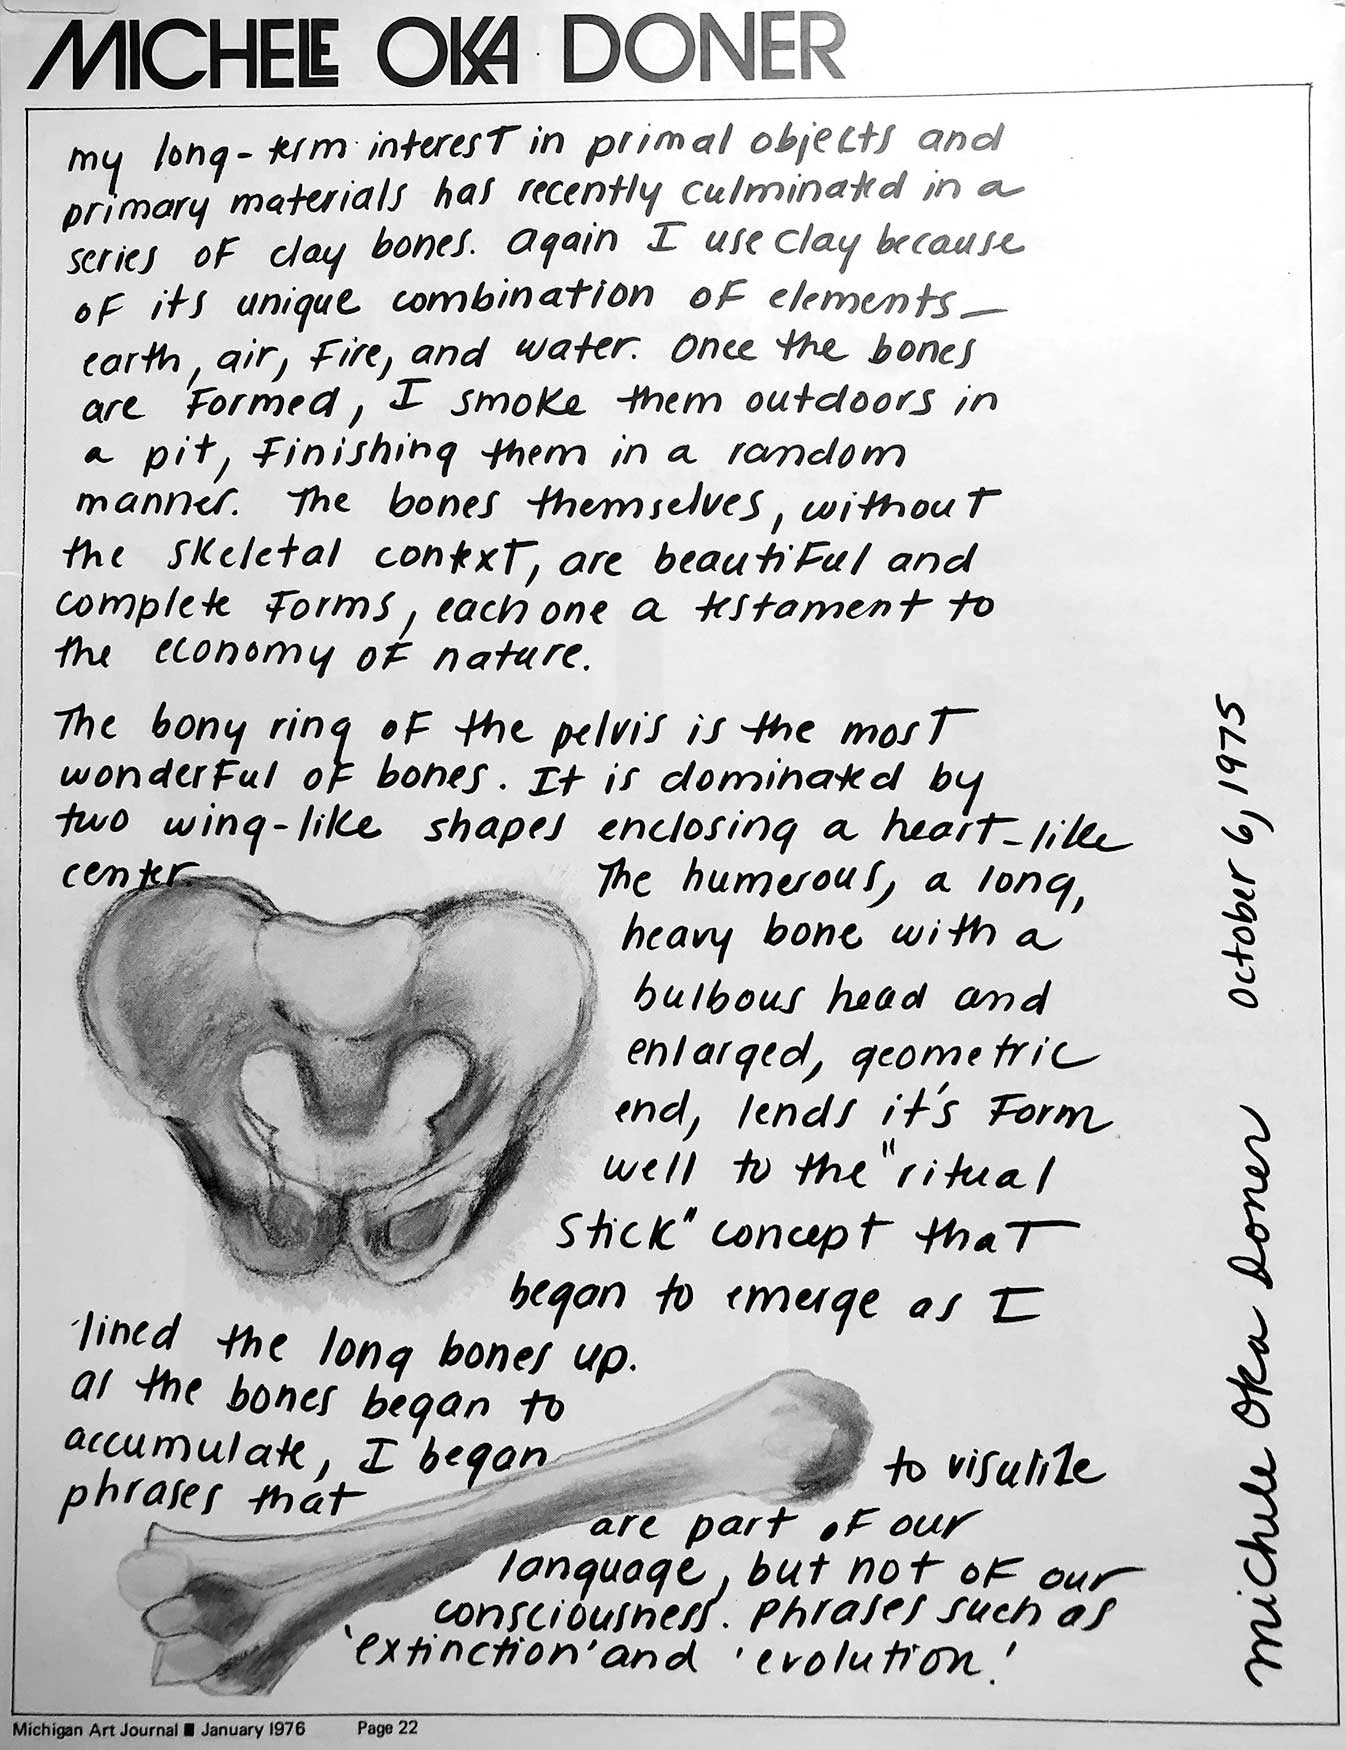 MICHELE OKA DONER
my long-term interest in primal objects and
primary materials has recently culminated in a
series of clay bones. Again I use clay because
of its unique combination of elements—
earth, air, fire, and water. Once the bones
are formed, I smoke them outdoors in
a pit, finishing them in a random
manner. The bones themselves, without
the skeletal context, are beautiful and
complete forms, each one a testament to
the economy of nature.
The bony ring of the pelvis is the most
wonderful of bones. It is dominated by
two wing-like shapes enclosing a heart-like
center. The humerous, a long,
heavy bone with a
bulbous head and
enlarged, geometric
end, lends it's form
well to the "ritual
stick" concept that
began to emerge as I
lined the long bones up.
as the bones began to
accumulate, I began to visulize
phrases that are part of our
language, but not of our
consciousness. Phrases such as
'extinction' and 'evolution.'
michele oka doner October 6, 1975
Michigan Art Journal ■ January 1976 Page 22